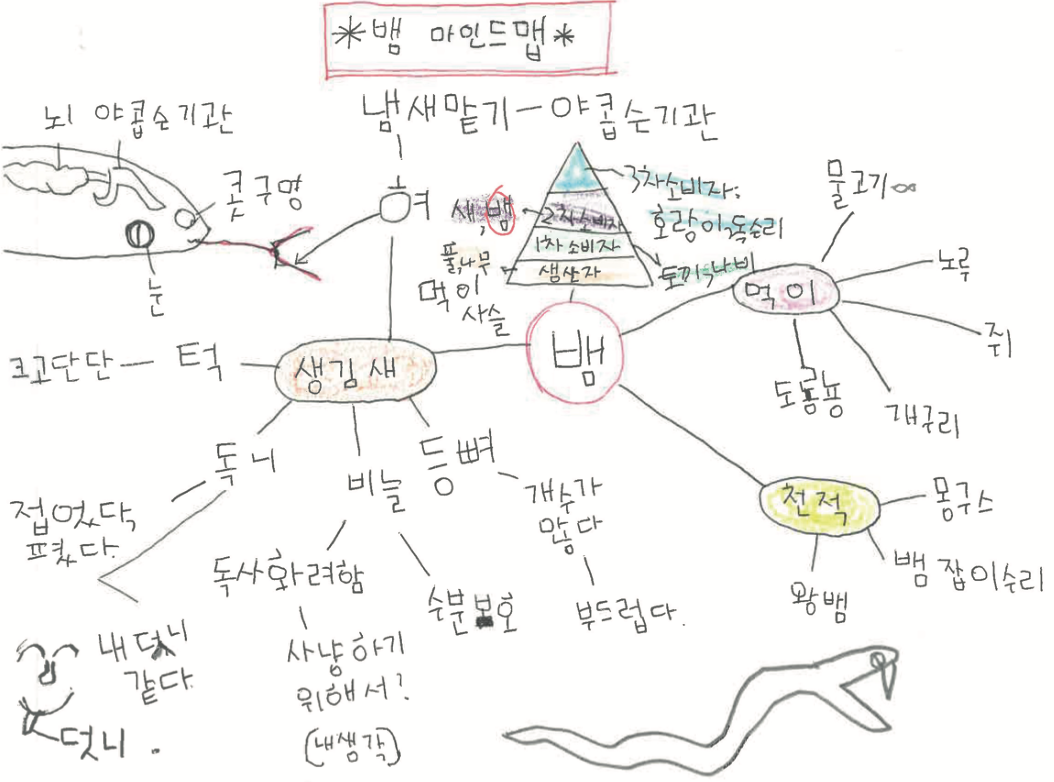 *뱀 마인드맵*
냄새맡기 - 야콥슨기관
뇌 야콥슨기관
콧구멍
눈
혀
3차소비자:
호랑이,독수리
새,뱀
2차소비자
1차소비자
생산자
풀,나무
토끼,나비
먹이
사슬
물고기
먹이
노루
쥐
도롱뇽
개구리
뱀
생김새
턱
크고단단
독니
접었다,
폈다.
내 덧니
같다.
덧니.
비늘
독사화려함
사냥하기
위해서?
(내생각)
수분보호
등뼈
개수가
많다
부드럽다.
천적
몽구스
뱀잡이수리
왕뱀